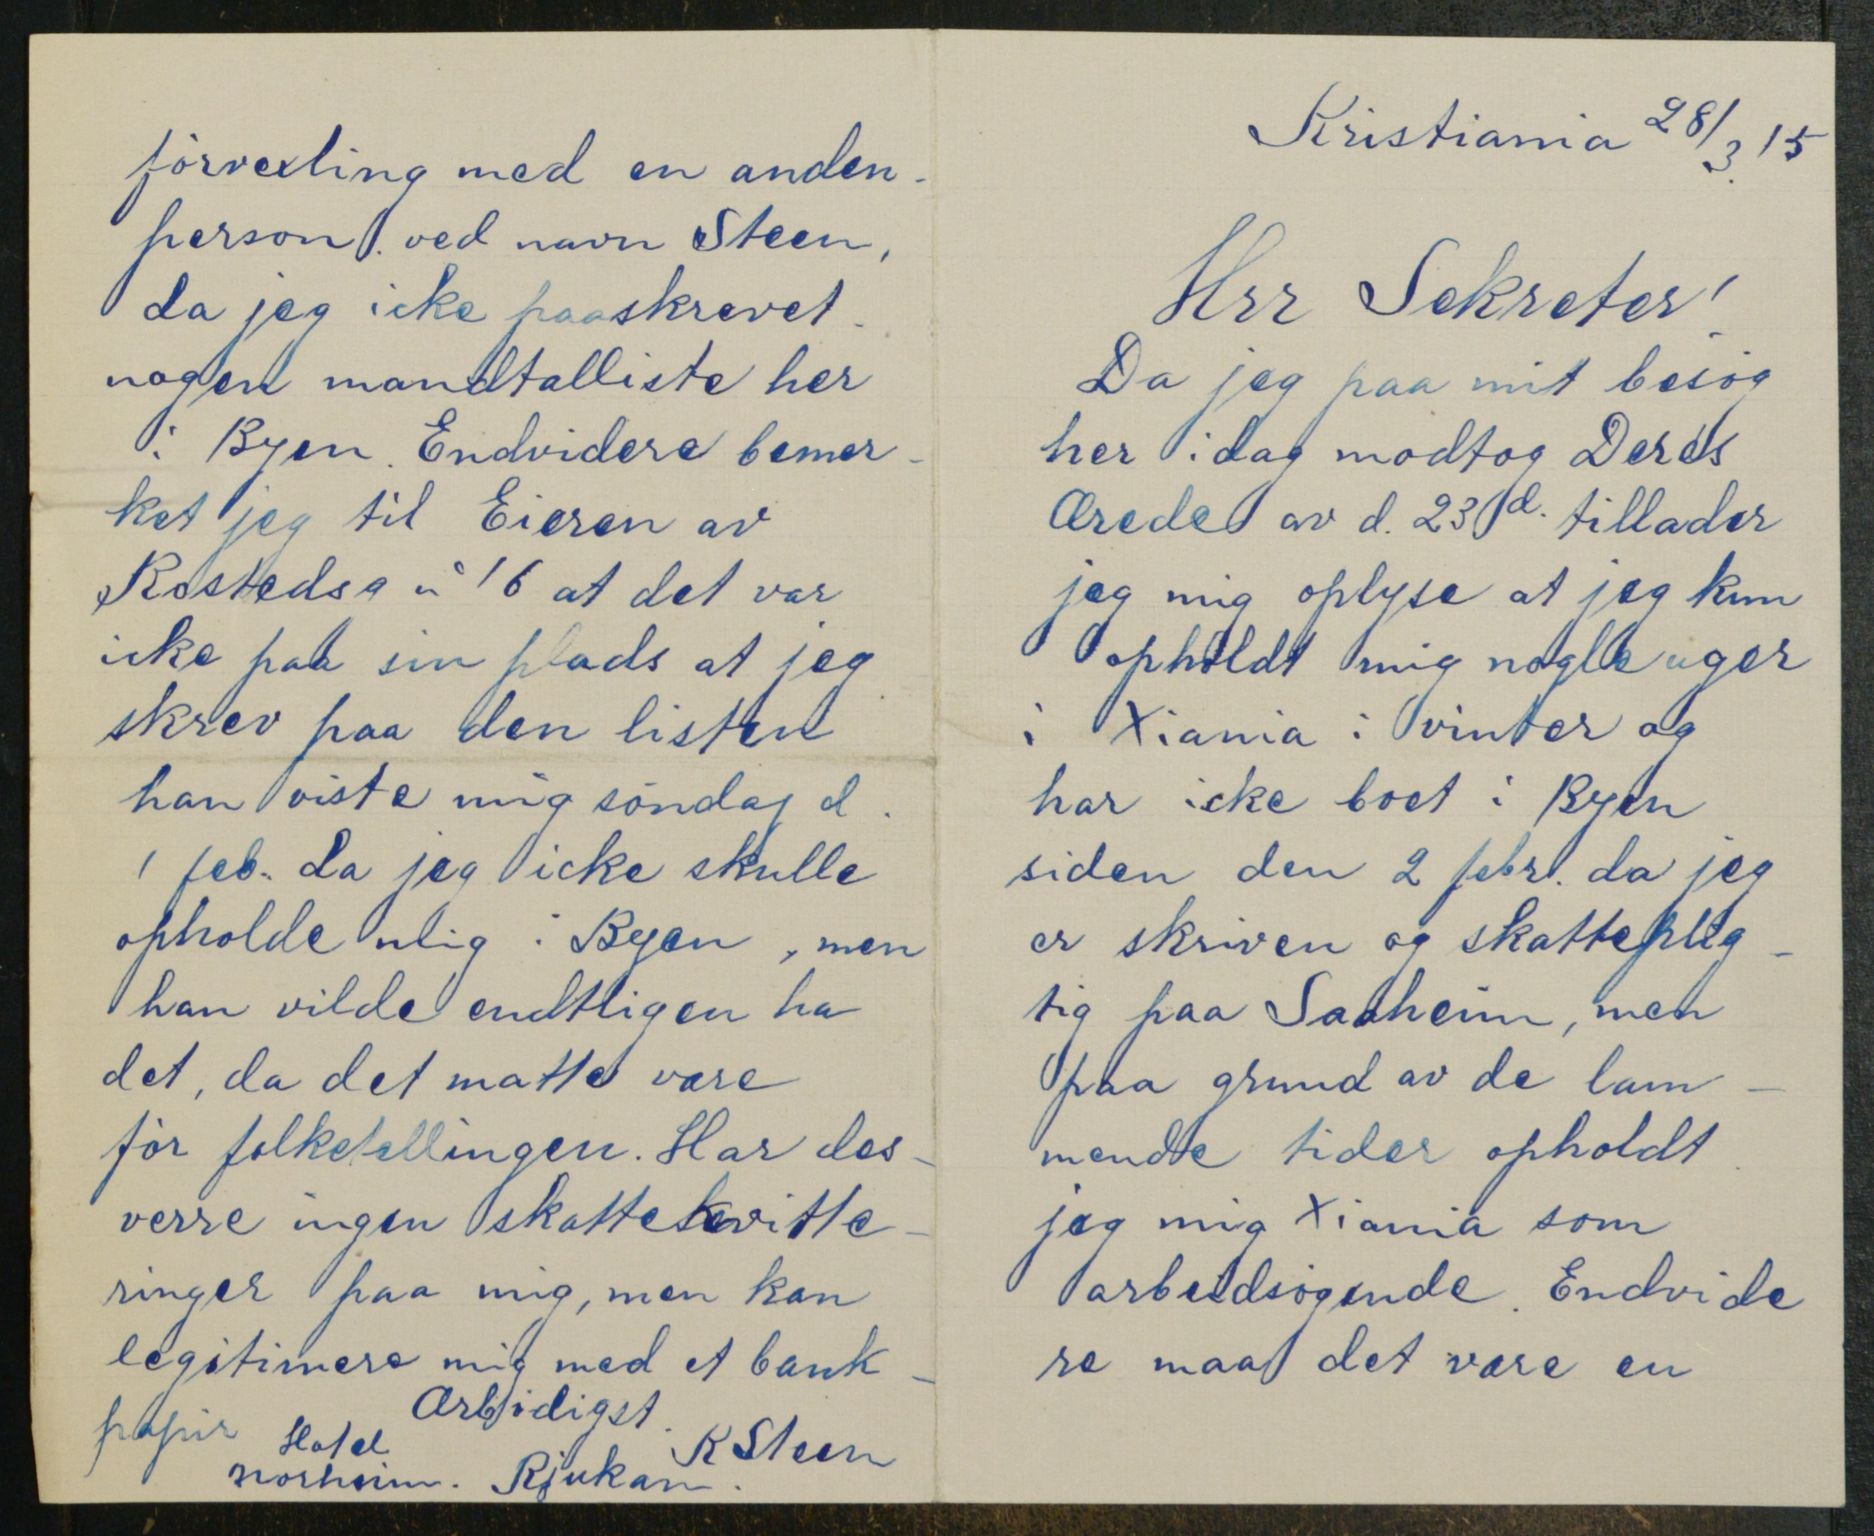 Kristiania 28/3 15
Hrr Sekreter!
Da jeg paa mit besøg
her idag modtog Deres
Ærede av d. 23 d. tillader
jeg mig oplyse at jeg kun
opholdt mig nogle uger
i Xiania i vinter og
har icke boet i Byen
siden den 2 febr. da jeg
er skriven og skatteplig-
tig paa Saaheim, men
paa grund av de lam-
mende tider opholdt
jeg mig Xiania som
arbeidsøgende. Endvide
re maa det være en
förvexling med en anden
person ved navn Steen,
da jeg icke paaskrevet
nogen mandtalliste her
i Byen. Endvidere bemer-
ket jeg til Eieren av
Rostedsg n 16 at det var
icke paa sin plads at jeg
skrev paa den listen
han viste mig söndag d.
1 feb. da jeg icke skulle
opholde mig i Byen, men
han vilde endtligen ha
det, da det matte være
för folketellingen. Har des-
verre ingen skattekvitte-
ringer paa mig, men kan
legitimere mig med et bank-
papir
Ærbødigst.
K Steen
Hotel
Norheim. Rjukan.